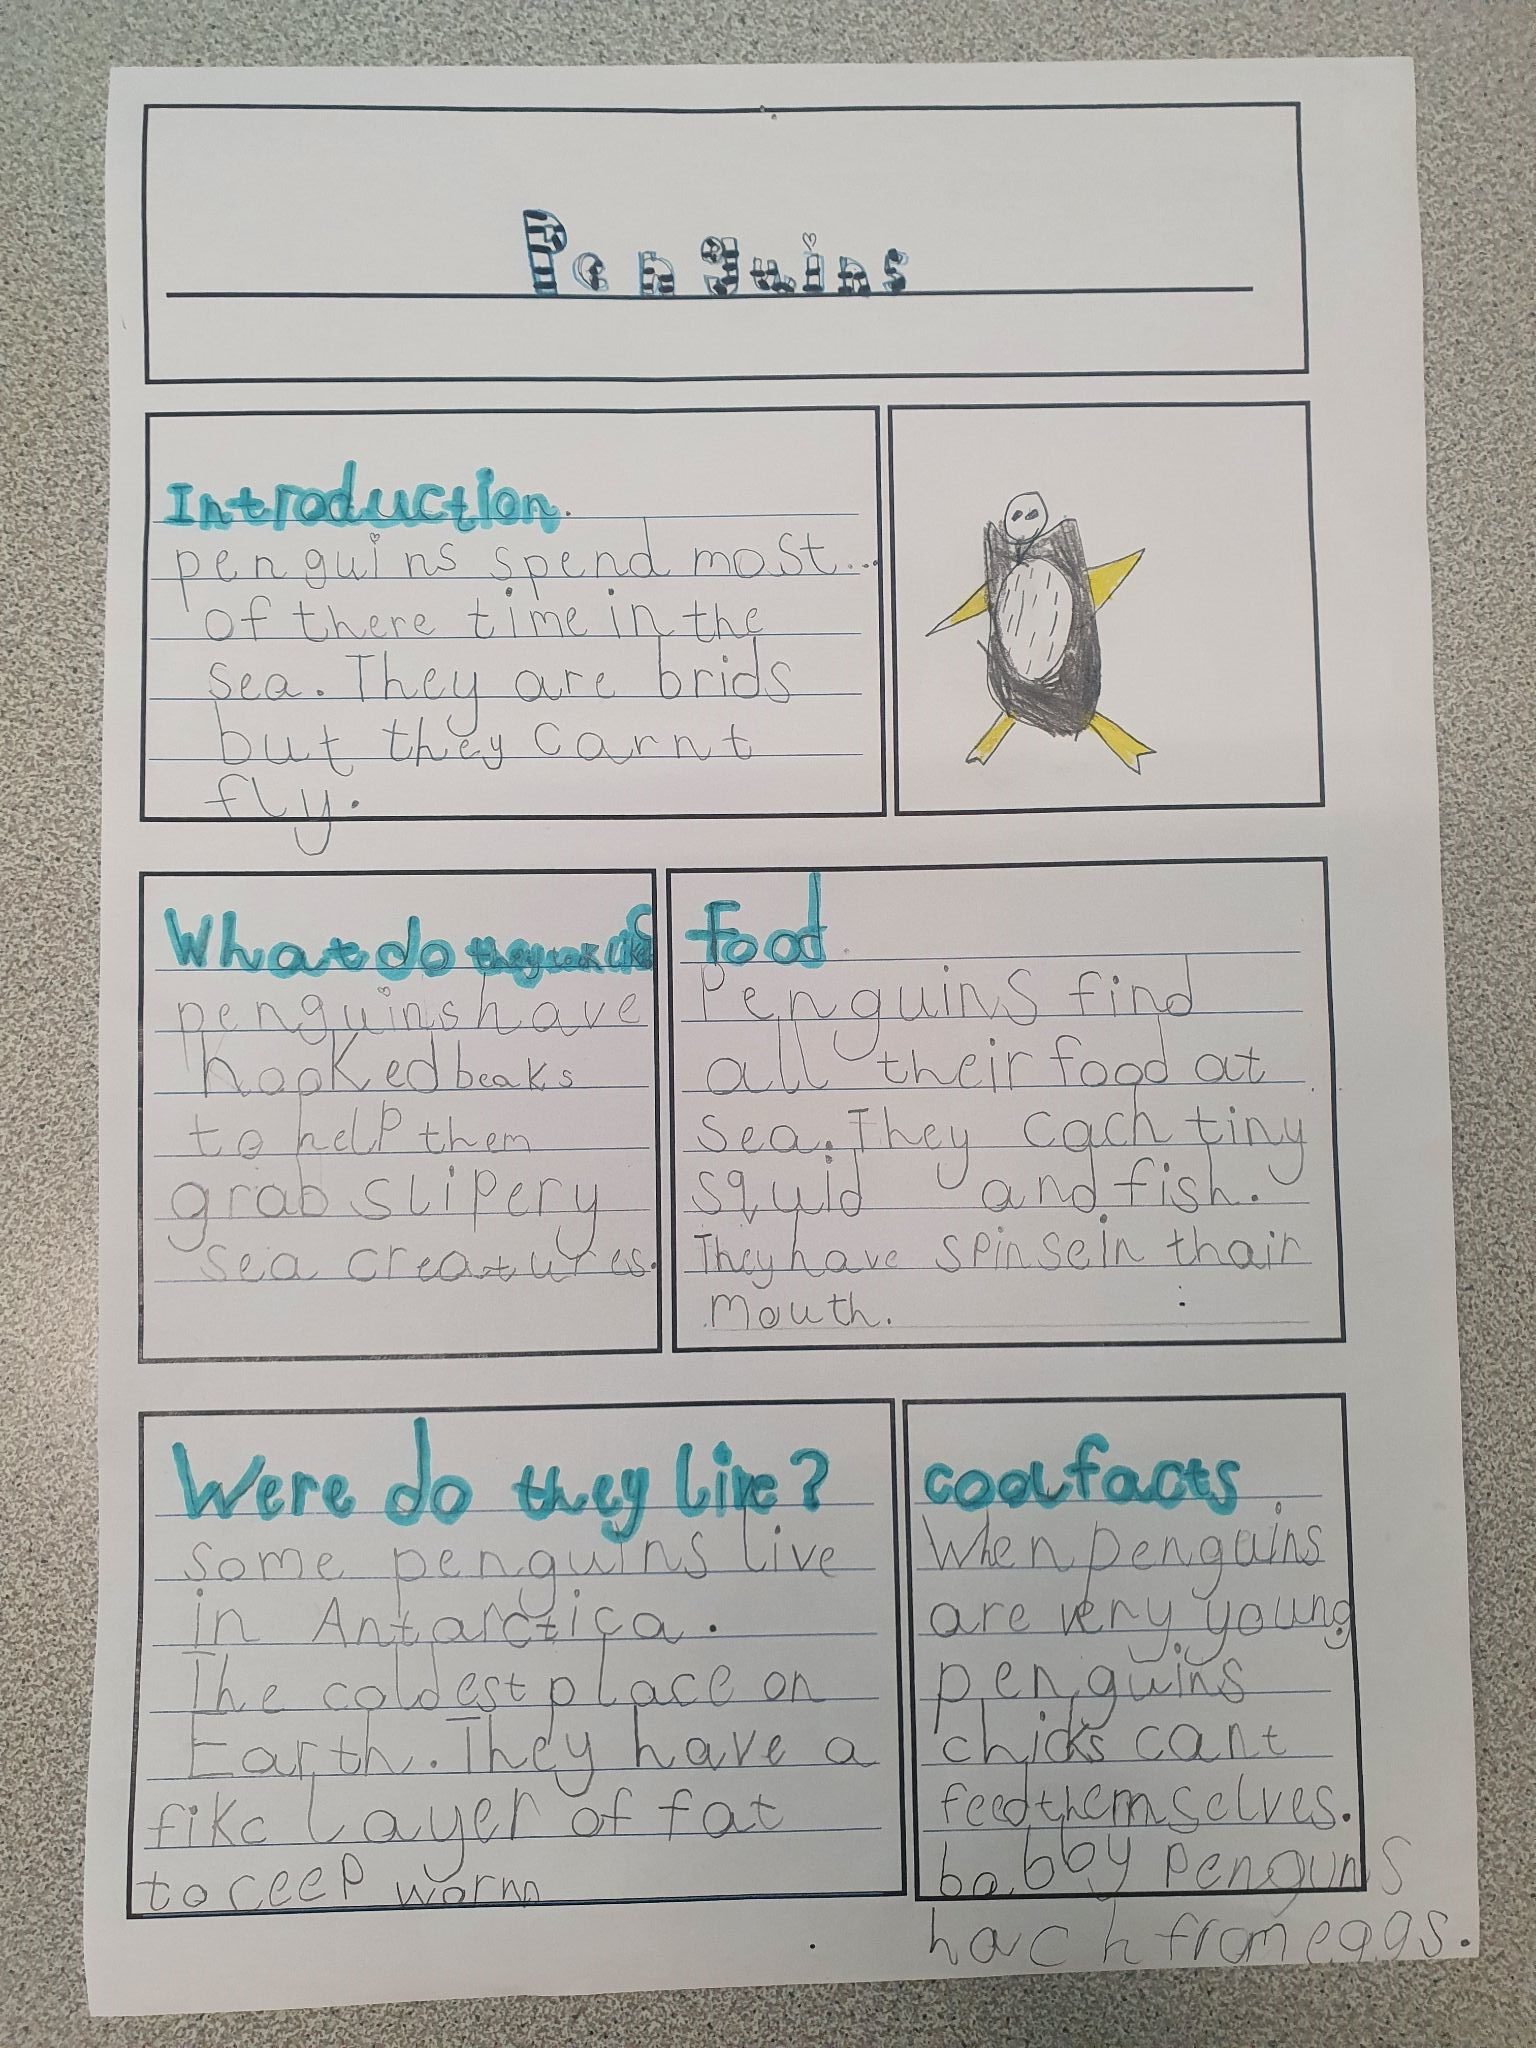 Penguins
Introduction.
penguins spend most...
of there time in the
sea. They are brids
but they carnt
fly.
What do they look like?
penguins have
hooked beaks
to help them
grab slipery
sea creatures.
Food
Penguins find
all their food at
sea. They cach tiny
squid and fish.
They have spinse in thair
mouth.
Were do they live?
some penguins live
in Antarctica.
The coldest place on
Earth. They have a
fike layer of fat
to ceep worm
cool facts
When penguins
are very young
penguins
chicks cant
feed themselves.
babby penguns
hach from eggs.